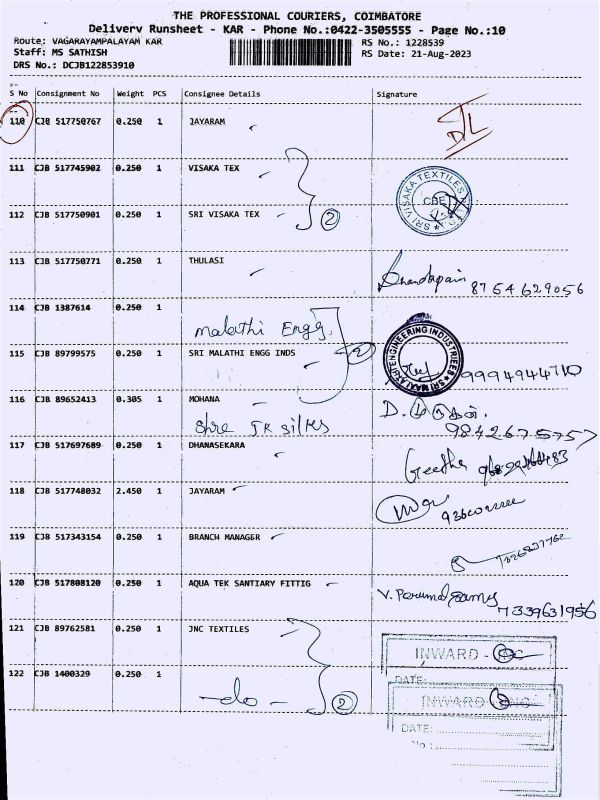 THE PROFESSIONAL COURIERS, COIMBATORE
Delivery Runsheet - KAR - Phone No.:0422-3505555 - Page No.:10
Route: VAGARAYAMPALAYAM KAR
RS No.: 1228539
Staff: MS SATHISH
RS Date: 21-Aug-2023
DRS No.: DCJB122853910
S No Consignment No Weight PCS Consignee Details Signature
110 CJB 517750767 0.250 1 JAYARAM
111 CJB 517745902 0.250 1 VISAKA TEX
SRI VISAKA TEXTILES
CBE
112 CJB 517750901 0.250 1 SRI VISAKA TEX 2
113 CJB 517750771 0.250 1 THULASI
8754629056
114 CJB 1387614 0.250 1
Malathi Engg
115 CJB 89799575 0.250 1 SRI MALATHI ENGG INDS 2
ENGINEERING INDUSTRIES
9994944710
116 CJB 89652413 0.305 1 MOHANA
Shre TR Silks
9842675757
117 CJB 517697689 0.250 1 DHANASEKARA
Geetha
118 CJB 517748032 2.450 1 JAYARAM
119 CJB 517343154 0.250 1 BRANCH MANAGER
120 CJB 517808120 0.250 1 AQUA TEK SANTIARY FITTIG
V. Perumalsamy
7339631956
121 CJB 89762581 0.250 1 JNC TEXTILES
INWARD -
122 CJB 1400329 0.250 1
DATE:
-do- 2
INWARD
DATE:
No :